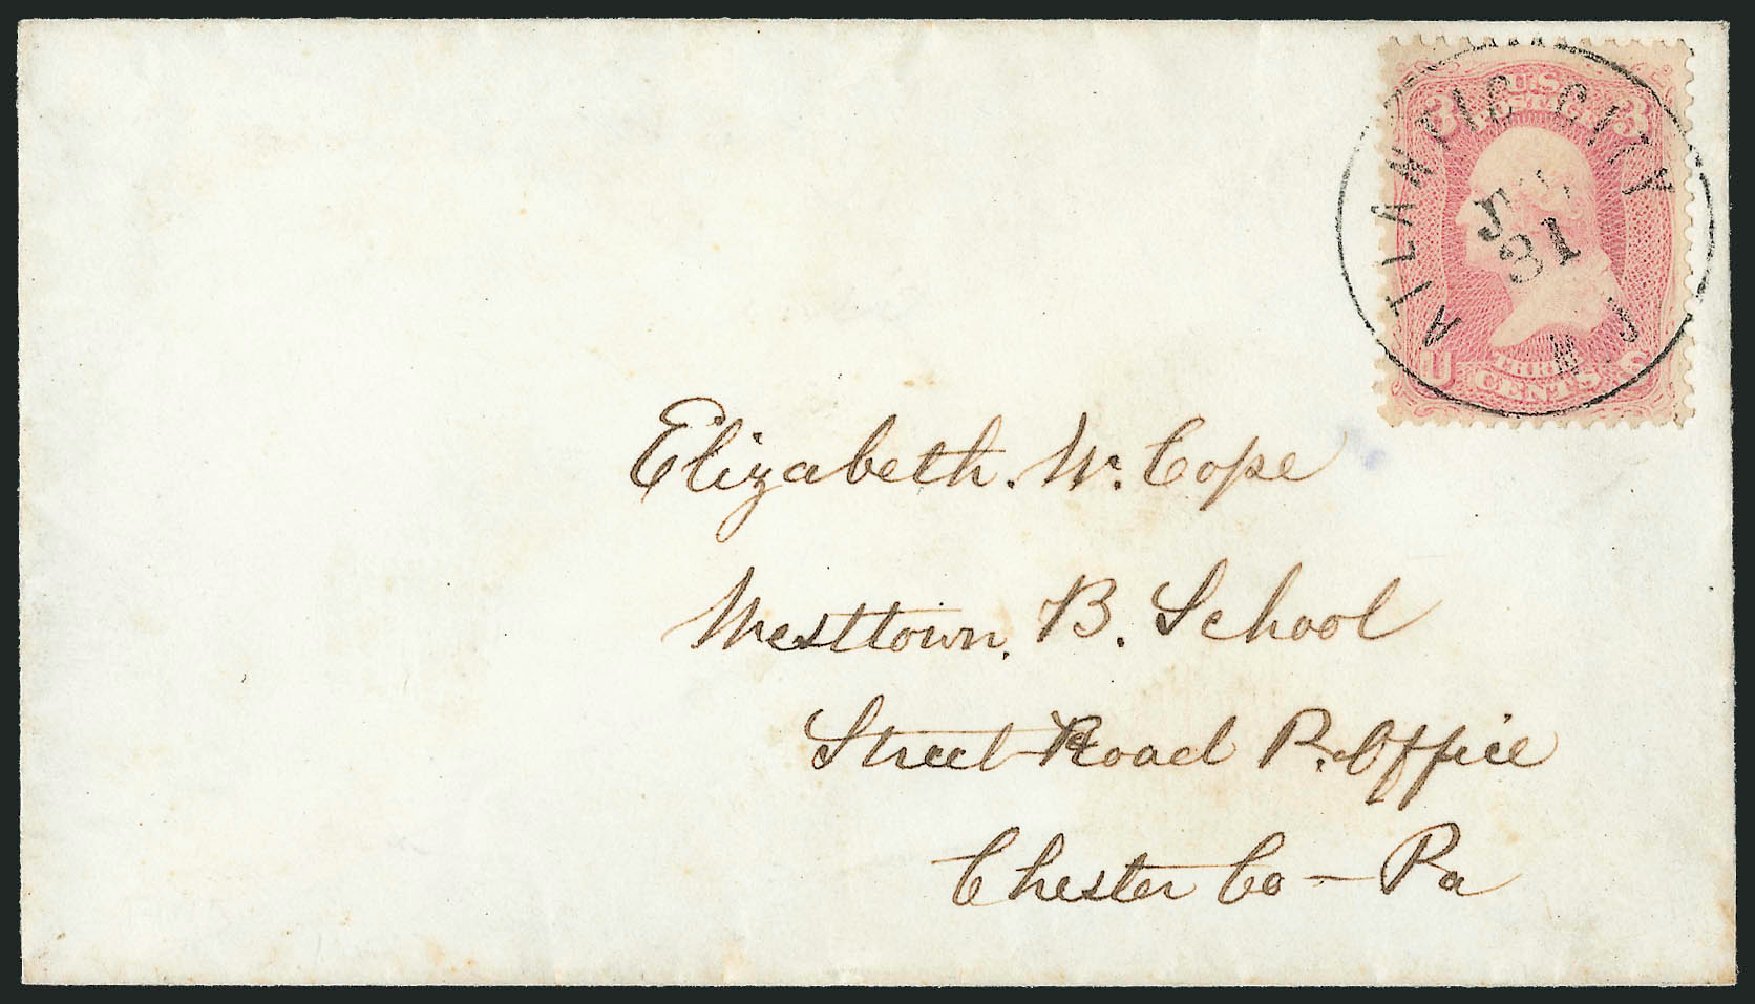 3 U.S. 3
POSTAGE
ATLANTIC CITY
JUL
31
N.J.
U S
THREE
CENTS
Elizabeth. W. Cope
Westtown. B. School
Street Road P. Office
Chester Co — Pa